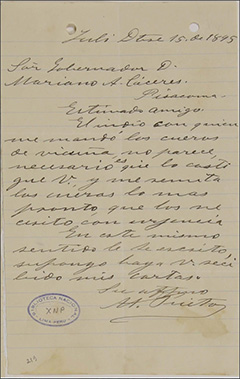 Juli Dbre 15. de 1895
Sor Gobernador D.
Mariano A. Cáceres.
Pisacoma.
Estimado amigo.
El indio con quien
me mandó los cueros
de vicuña no parece
necesario es que lo casti
gue V. y me remita
los cueros lo mas
pronto que los ne
cesito con urgencia
En este mismo
sentido le he escrito
supongo haya V. reci
bido mis cartas.
Su
Prieto
BIBLIOTECA NACIONAL
XNP
LIMA-PERU